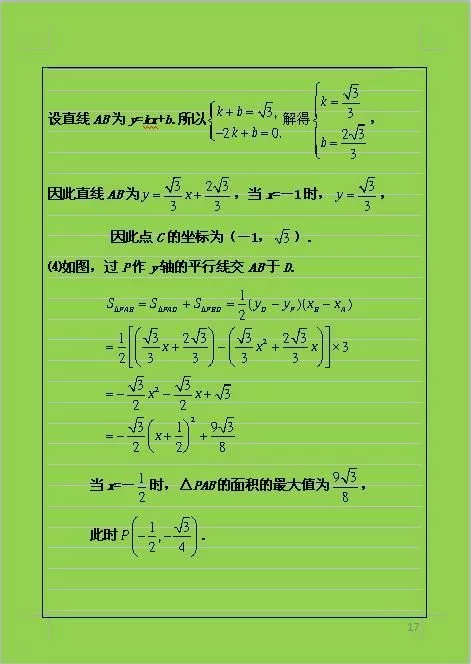 设直线 AB 为 y=kx+b.所以{k+b=√3, -2k+b=0. 解得{k=√3/3, b=2√3/3 ,
因此直线 AB 为 y=√3/3 x+2√3/3 ，当 x=－1 时，y=√3/3 ，
因此点 C 的坐标为（－1，√3）.
⑷如图，过 P 作 y 轴的平行线交 AB 于 D.
S△PAB=S△PAD+S△PBD=1/2(yD-yP)(xB-xA)
=1/2[(√3/3 x+2√3/3)-(√3/3 x²+2√3/3 x)]×3
=-√3/2 x²-√3/2 x+√3
=-√3/2(x+1/2)²+9√3/8
当 x=－1/2 时，△PAB 的面积的最大值为 9√3/8 ，
此时 P(-1/2,-√3/4).
17